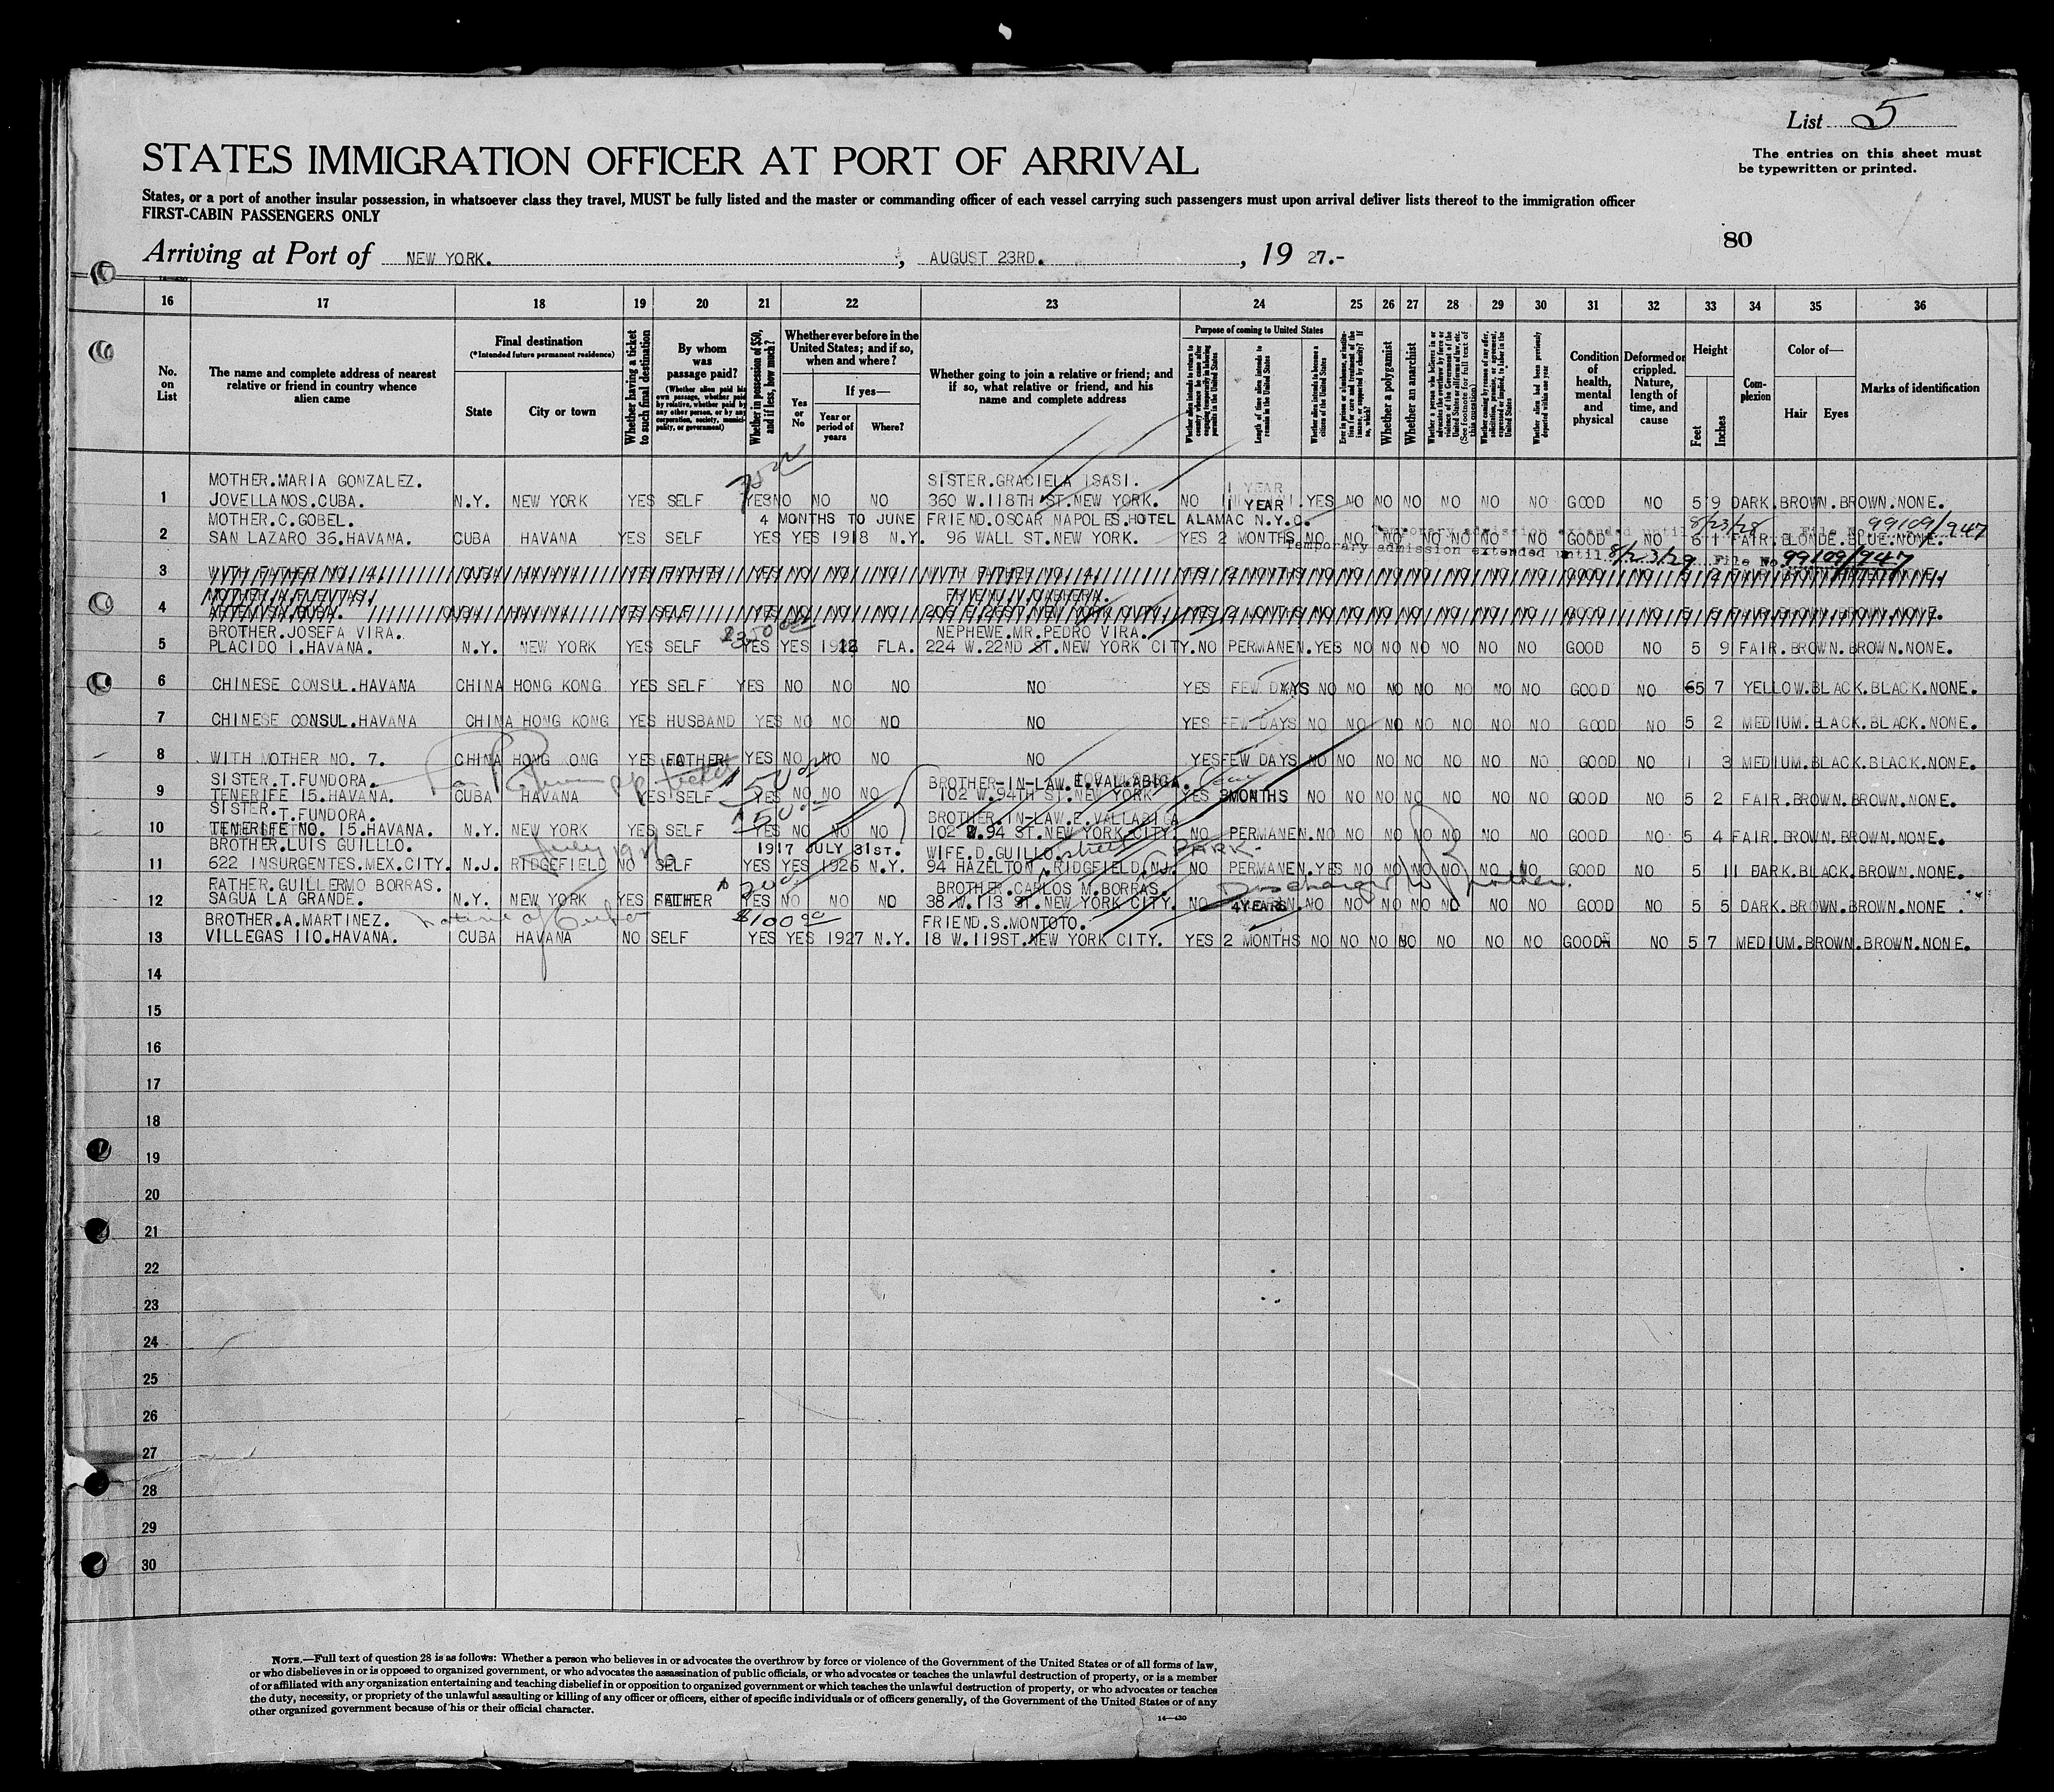 List 5
STATES IMMIGRATION OFFICER AT PORT OF ARRIVAL
The entries on this sheet must
be typewritten or printed.
States, or a port of another insular possession, in whatsoever class they travel, MUST be fully listed and the master or commanding officer of each vessel carrying such passengers must upon arrival deliver lists thereof to the immigration officer
FIRST-CABIN PASSENGERS ONLY
80
Arriving at Port of NEW YORK. , AUGUST 23RD. , 19 27.-
16 17 18 19 20 21 22 23 24 25 26 27 28 29 30 31 32 33 34 35 36
No. on List
The name and complete address of nearest relative or friend in country whence alien came
Final destination
(*Intended future permanent residence)
State
City or town
Whether having a ticket to such final destination
By whom was passage paid?
(Whether alien paid his own passage, whether paid by relative, whether paid by any other person, or by any corporation, society, municipality, or government)
Whether in possession of $50, and if less, how much?
Whether ever before in the United States; and if so, when and where?
Yes or No
If yes—
Year or period of years
Where?
Whether going to join a relative or friend; and if so, what relative or friend, and his name and complete address
Purpose of coming to United States
Whether alien intends to return to country whence he came after engaging temporarily in laboring pursuits in the United States
Length of time alien intends to remain in the United States
Whether alien intends to become a citizen of the United States
Whether a polygamist
Whether an anarchist
Whether alien had been previously deported within one year
Condition of health, mental and physical
Deformed or crippled. Nature, length of time, and cause
Height
Feet
Inches
Complexion
Color of—
Hair
Eyes
Marks of identification
MOTHER.MARIA GONZALEZ. SISTER.GRACIELA ISASI. 1 YEAR
1 JOVELLANOS.CUBA. N.Y. NEW YORK YES SELF YES NO NO NO 360 W.118TH ST.NEW YORK. NO 1 YEAR YES NO NO NO NO NO NO GOOD NO 5 9 DARK.BROWN.BROWN.NONE.
MOTHER.C.GOBEL. 4 MONTHS TO JUNE FRIEND.OSCAR NAPOLES.HOTEL ALAMAC N.Y.C.
Temporary admission extended until 8/23/28 File No. 99109/947
2 SAN LAZARO 36.HAVANA. CUBA HAVANA YES SELF YES YES 1918 N.Y. 96 WALL ST.NEW YORK. YES 2 MONTHS NO NO NO NO NO NO NO GOOD NO 6 1 FAIR.BLONDE.BLUE.NONE.
Temporary admission extended until 8/23/29 File No. 99109/947
3 WITH FATHER NO. 4. CUBA HAVANA YES FATHER YES NO NO NO WITH FATHER NO. 4. YES 2 MONTHS NO NO NO NO NO NO NO GOOD NO
4 CUBA HAVANA YES SELF YES NO NO NO YES 2 MONTHS NO NO NO NO NO NO NO GOOD NO 5 FAIR.BROWN.BROWN.NONE.
BROTHER.JOSEFA VIRA. NEPHEWE.MR.PEDRO VIRA.
5 PLACIDO 1.HAVANA. N.Y. NEW YORK YES SELF YES YES FLA. 224 W.22ND ST.NEW YORK CITY. NO PERMANEN. YES NO NO NO NO NO NO GOOD NO 5 9 FAIR.BROWN.BROWN.NONE.
6 CHINESE CONSUL.HAVANA CHINA HONG KONG YES SELF YES NO NO NO NO YES FEW DAYS NO NO NO NO NO NO NO GOOD NO 5 7 YELLOW.BLACK.BLACK.NONE.
7 CHINESE CONSUL.HAVANA CHINA HONG KONG YES HUSBAND YES NO NO NO NO YES FEW DAYS NO NO NO NO NO NO NO GOOD NO 5 2 MEDIUM.BLACK.BLACK.NONE.
8 WITH MOTHER NO. 7. CHINA HONG KONG YES FATHER YES NO NO NO NO YES FEW DAYS NO NO NO NO NO NO NO GOOD NO 1 3 MEDIUM.BLACK.BLACK.NONE.
SISTER.T.FUNDORA. $50.00 BROTHER-IN-LAW.E.VALLABIGA.
9 TENERIFE 15.HAVANA. CUBA HAVANA YES SELF YES NO NO NO 102 W.94TH ST.NEW YORK YES MONTHS NO NO NO NO NO NO NO GOOD NO 5 2 FAIR.BROWN.BROWN.NONE.
SISTER.T.FUNDORA. BROTHER.IN-LAW.E.VALLABIGA
10 TENERIFE NO. 15.HAVANA. N.Y. NEW YORK YES SELF YES NO NO NO 102 W.94 ST.NEW YORK CITY. NO PERMANEN. NO NO NO NO NO NO NO GOOD NO 5 4 FAIR.BROWN.BROWN.NONE.
BROTHER.LUIS GUILLLO. 1917 JULY 31ST. WIFE.D.GUILLO. street PARK.
11 622 INSURGENTES.MEX.CITY. N.J. RIDGEFIELD NO SELF YES YES 1926 N.Y. 94 HAZELTON RIDGEFIELD N.J. NO PERMANEN. YES NO NO NO NO NO NO GOOD NO 5 11 DARK.BLACK.BROWN.NONE.
FATHER.GUILLERMO BORRAS. BROTHER.CARLOS M.BORRAS. Discharged to brother.
12 SAGUA LA GRANDE. N.Y. NEW YORK YES FATHER YES NO NO NO 38 W.113 ST.NEW YORK CITY. NO 4 YEARS NO NO NO NO NO NO NO GOOD NO 5 5 DARK.BROWN.BROWN.NONE.
BROTHER.A.MARTINEZ. native of Cuba $100.00 FRIEND.S.MONTOTO.
13 VILLEGAS 110.HAVANA. CUBA HAVANA NO SELF YES YES 1927 N.Y. 18 W.119ST.NEW YORK CITY. YES 2 MONTHS NO NO NO NO NO NO NO GOOD NO 5 7 MEDIUM.BROWN.BROWN.NONE.
14
15
16
17
18
19
20
21
22
23
24
25
26
27
28
29
30
NOTE.—Full text of question 28 is as follows: Whether a person who believes in or advocates the overthrow by force or violence of the Government of the United States or of all forms of law,
or who disbelieves in or is opposed to organized government, or who advocates the assassination of public officials, or who advocates or teaches the unlawful destruction of property, or is a member
of or affiliated with any organization entertaining and teaching disbelief in or opposition to organized government or which teaches the unlawful destruction of property, or who advocates or teaches
the duty, necessity, or propriety of the unlawful assaulting or killing of any officer or officers, either of specific individuals or of officers generally, of the Government of the United States or of any
other organized government because of his or their official character.
14—430